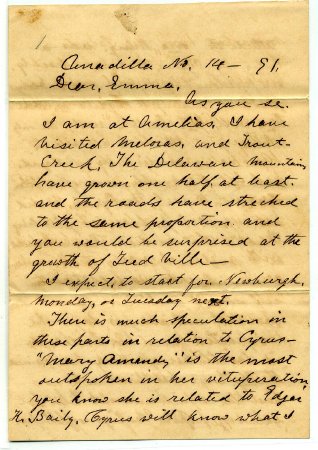 Unadilla No. 14 - 91.
Dear, Emma,
As you se.
I am at Amelias. I have
visited Melvias, and Trout-
Creek, The Delaware mountains
have grown one half, at least.
and the roads have streched
to the same proportion. and
you would be surprised at the
growth of Ville-
I expect, to start for Newburgh,
Monday, or Tuesday next.
There is much speculation in
these parts in relation to Cyrus-
"Mary Amandy" is the most
outspoken in her vituperation
you know she is related to Edgar
Baily. Cyrus will know what I